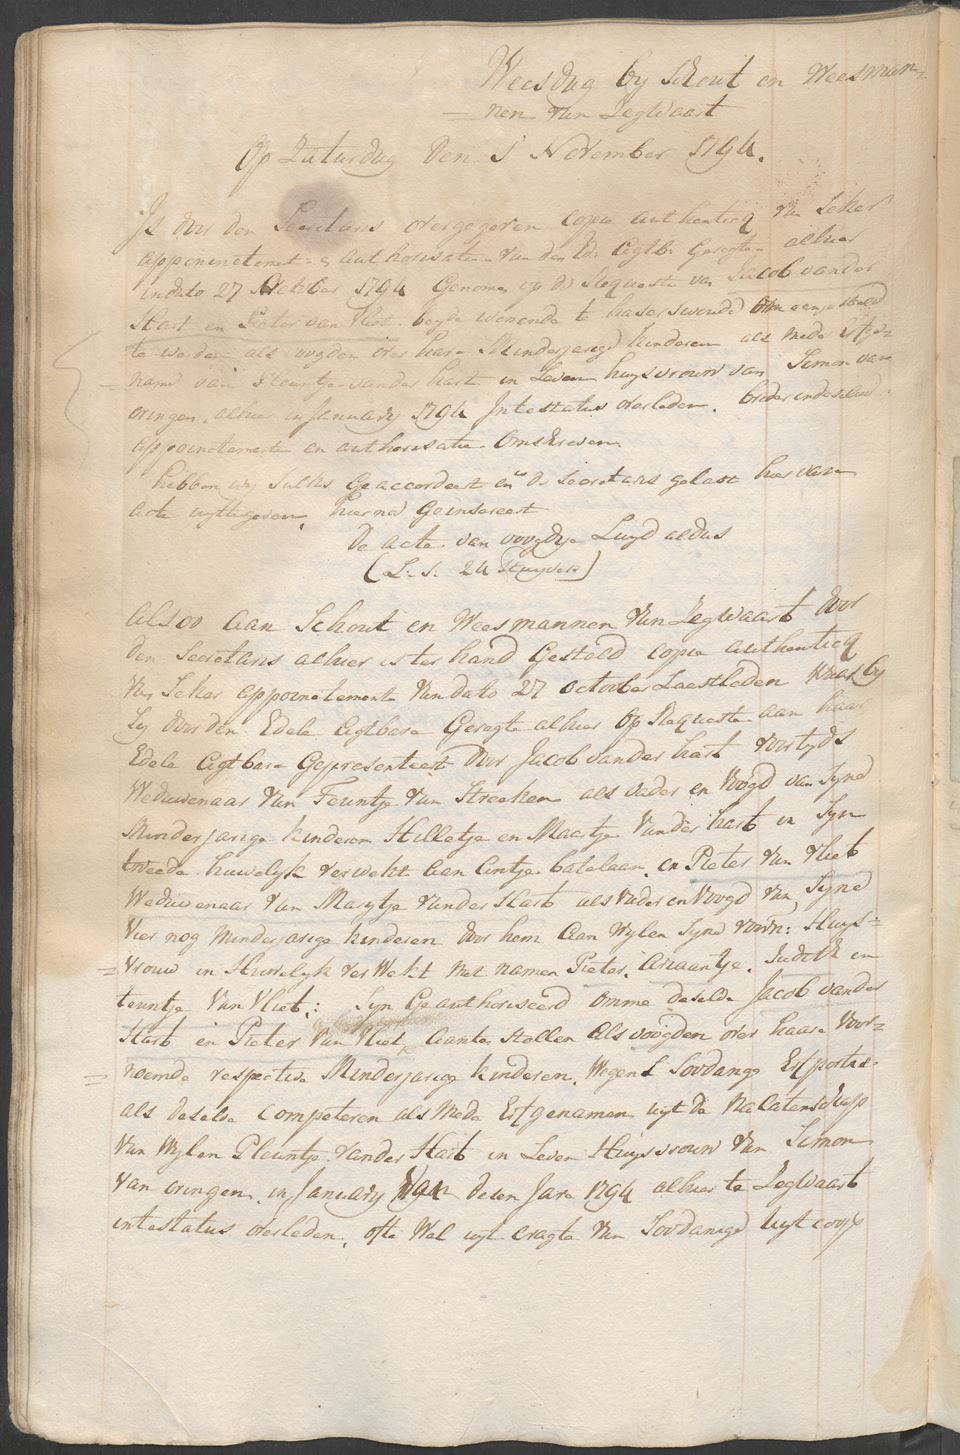 Weesdag by Schout en Weesman-
= nen van Zegwaart
Op Zaturdag den 1 November 1794.
Is door den Secretaris overgegeven copia authenticq van seker
appoinctement & authorisatie van den Ed: Agtb: Geregte alhier
in dato 27 October 1794 Genomen op de Requeste van Jacob vander
Hart en Pieter van Vliet beyde wonende te haserswoude om aengesteld
te werden als voogden over hare Minderjarige kinderen als mede Erfge-
= name van Pleuntje vander hart in Leven huysvrouw van Simon van
oringen, alhier in January 1794 Intestatus overleden, breder in deselve
appoinctemente en authorisatie omschreven.
hebben wij sulks Geaccordeert en de Secretaris gelast hier van
acte uyttegeven, hier na Geinsereert
De acte van voogdye Luyd aldus
(L: S: 24 Stuyvers)
Alsoo aan Schout en Weesmannen van Zegwaart door
den Secretaris alhier is ter hand Gesteld copia authenticq
van seker appoinctemente van dato 27 october Laestleden waar by
sij door den Edele Agtbare Geregte alhier op Requeste aan haar
Edele Agtbare Gepresenteert door Jacob vander hart voortyds
Weduwenaar van Teuntje van Streeken als vader en Voogd van Syne
Minderjarige kinderen Hilletje en Maartje vander hart in Syn
tweede huwelyk verwekt aan Aintje batelaan, en Pieter van Vliet
Weduwenaar van Marytje vander Hart als vader en Voogd van Syne
Vier nog Minderjarige kinderen door hem aan Wylen Syne voorn: Huys-
= vrouw in Huwelyk verwekt met namen Pieter, Ariaantje, Judith en
teuntje van Vliet,: Syn Geauthoriseerd omme deselve Jacob vander
Hart en Pieter van Vliet, aante stellen als voogden over haare voor=
= noemde respective Minderjarige kinderen, wegens soodanige Erfportie
als deselve competeren als mede Erfgenamen uyt de Nalatenschap
van wylen Pleuntje vander Hart in Leven Huysvrouw van Simon
van oringen, in January desen Jare 1794 alhier te Zegwaart
intestatus overleden, ofte Wel uyt cragte van Soodanige uytcoop